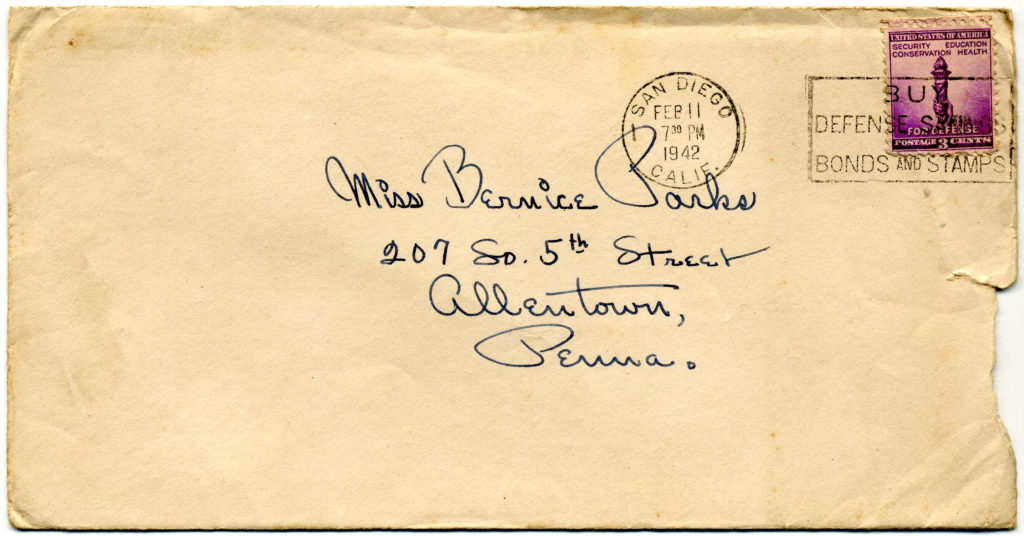 UNITED STATES OF AMERICA
SECURITY EDUCATION
CONSERVATION HEALTH
FOR DEFENSE
POSTAGE 3 CENTS
SAN DIEGO
FEB 11
7 30 PM
1942
CALIF.
BUY
DEFENSE SAVINGS
BONDS AND STAMPS
Miss Bernice Parks
207 So. 5th Street
Allentown,
Penna.